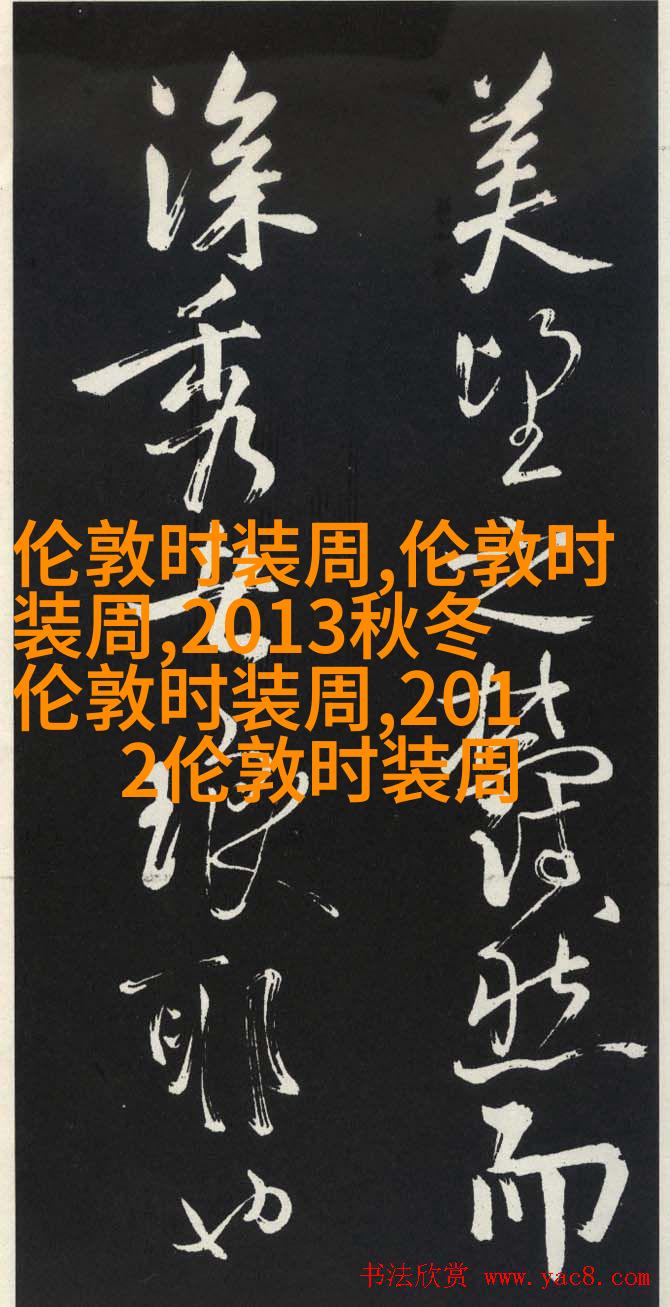 美望之蔚然而
深秀者瑯耶也
伦敦时装周,伦敦时
装周,2013秋冬
伦敦时装周,201
2伦敦时装周
书法欣赏 www.yac8.com